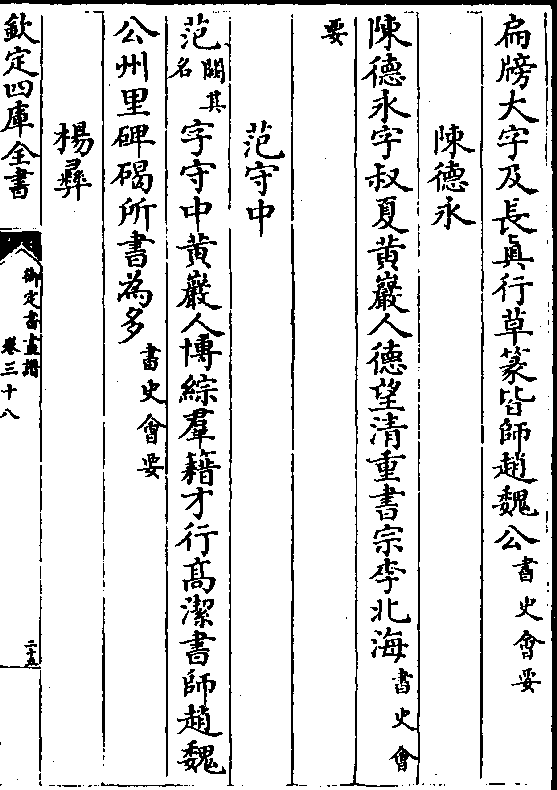 扁牓大字及長真行草篆皆師趙魏公書史㑹要
陳德永
陳德永字叔夏黄巖人德望清重書宗李北海書史㑹
要
范守中
范闕其名字守中黄巖人博綜羣籍才行高潔書師趙魏
公州里碑碣所書為多書史㑹要
楊彞
欽定四庫全書
御定書畫譜
卷三十八
二十五